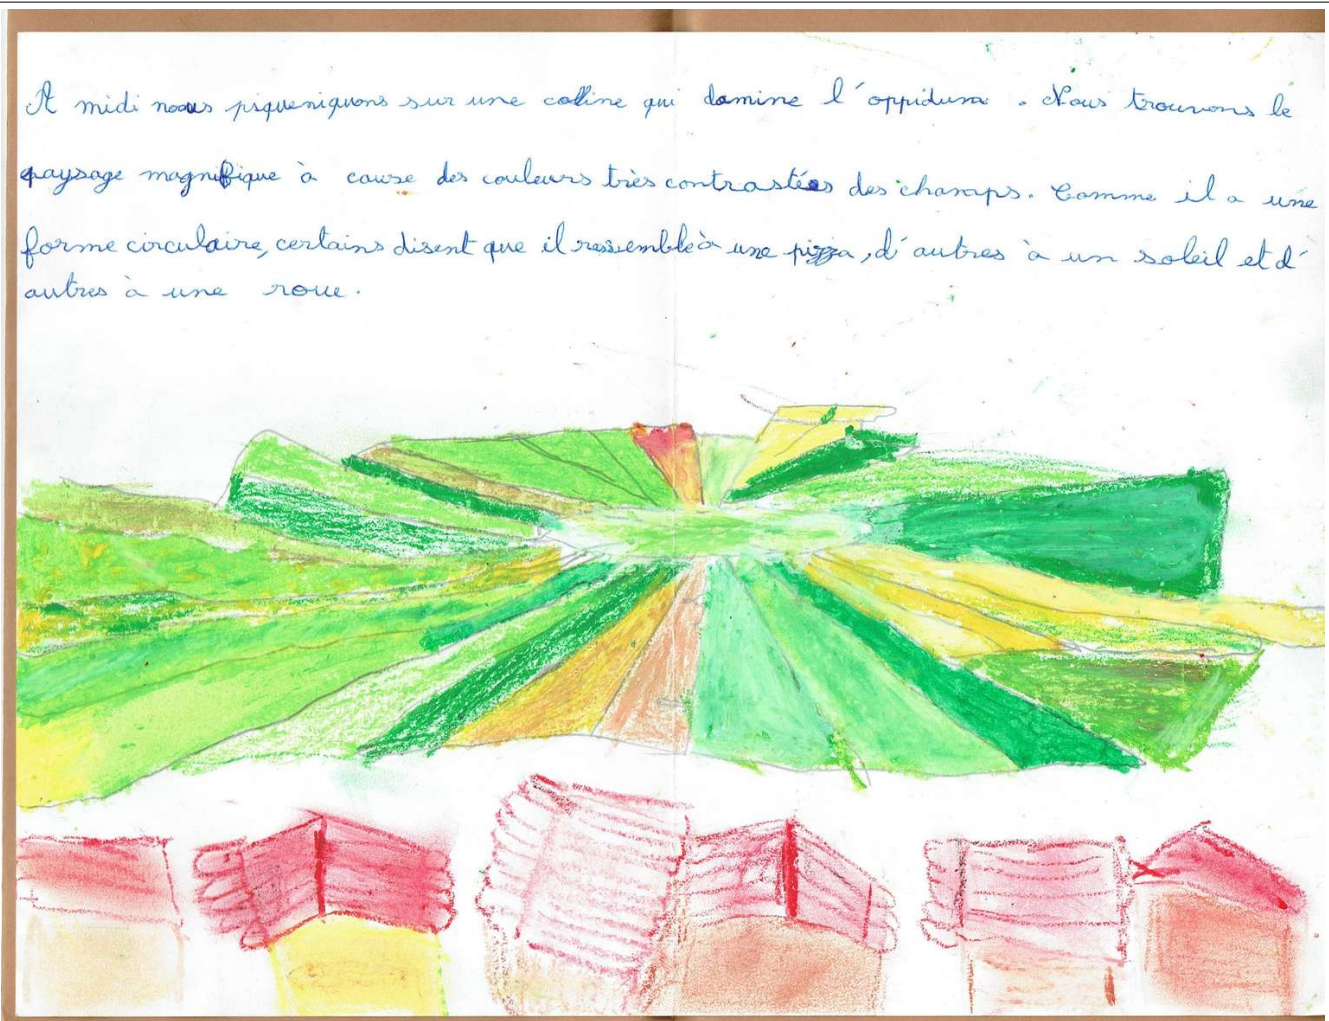 A midi nous piqueniquons sur une colline qui domine l'oppidum. Nous trouvons le
paysage magnifique à cause des couleurs très contrastées des champs. Comme il a une
forme circulaire, certains disent que il ressemble à une pizza, d'autres à un soleil et d'
autres à une roue.